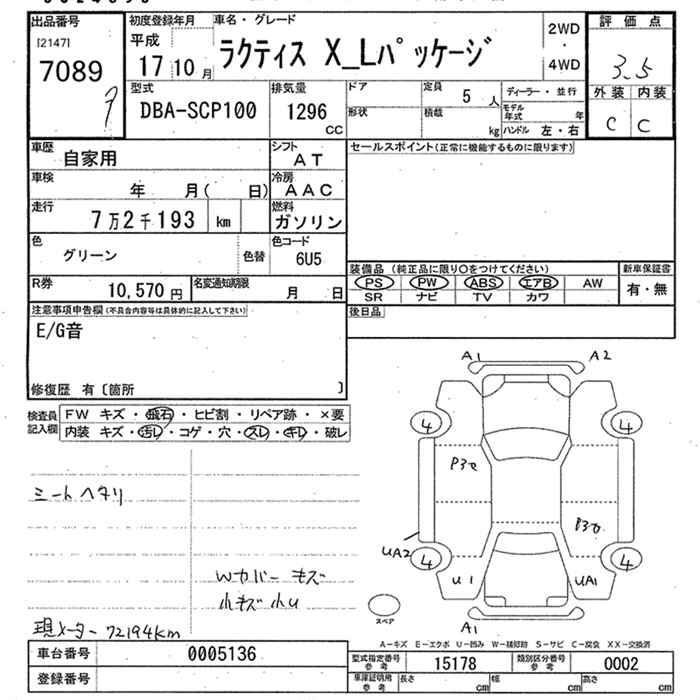 出品番号
[2147]
7089
初度登録年月
平成
17 10 月
車名・グレード
ラクティス X_Lパッケージ
2WD
・
4WD
評価点
3.5
外装 内装
C C
型式
DBA-SCP100
排気量
1296
CC
ドア
形状
定員
5 人
積載
kg
ディーラー・並行
モデル年式 年
ハンドル 左・右
車歴
自家用
シフト
AT
車検
年 月( 日)
冷房
AAC
走行
7万2千193 km
燃料
ガソリン
色
グリーン
色替
色コード
6U5
R券
10,570 円
名変通知期限
月 日
セールスポイント(正常に機能するものに限ります)
装備品 (純正品に限り〇をつけてください)
PS PW ABS エアB AW
SR ナビ TV カワ
新車保証書
有・無
後日品
注意事項申告欄(不具合内容等は具体的に記入して下さい)
E/G音
修復歴 有〔箇所 〕
検査員記入欄
FW キズ・飛石・ヒビ割・リペア跡・×要
内装 キズ・汚レ・コゲ・穴・スレ・キレ・破レ
シートヘタリ
Wカバーキズ
小キズ小U
現メーター72194km
A1
A2
4
4
P3て
P3て
UA2
4
4
U1
UA1
スペア
A1
A-キズ E-エクボ U-凹み W-補修跡 S-サビ C-腐食 XX-交換済
車台番号
0005136
登録番号
型式指定番号
参考
15178
類別区分番号
参考
0002
車庫証明用
参考
長さ cm
幅 cm
高さ cm